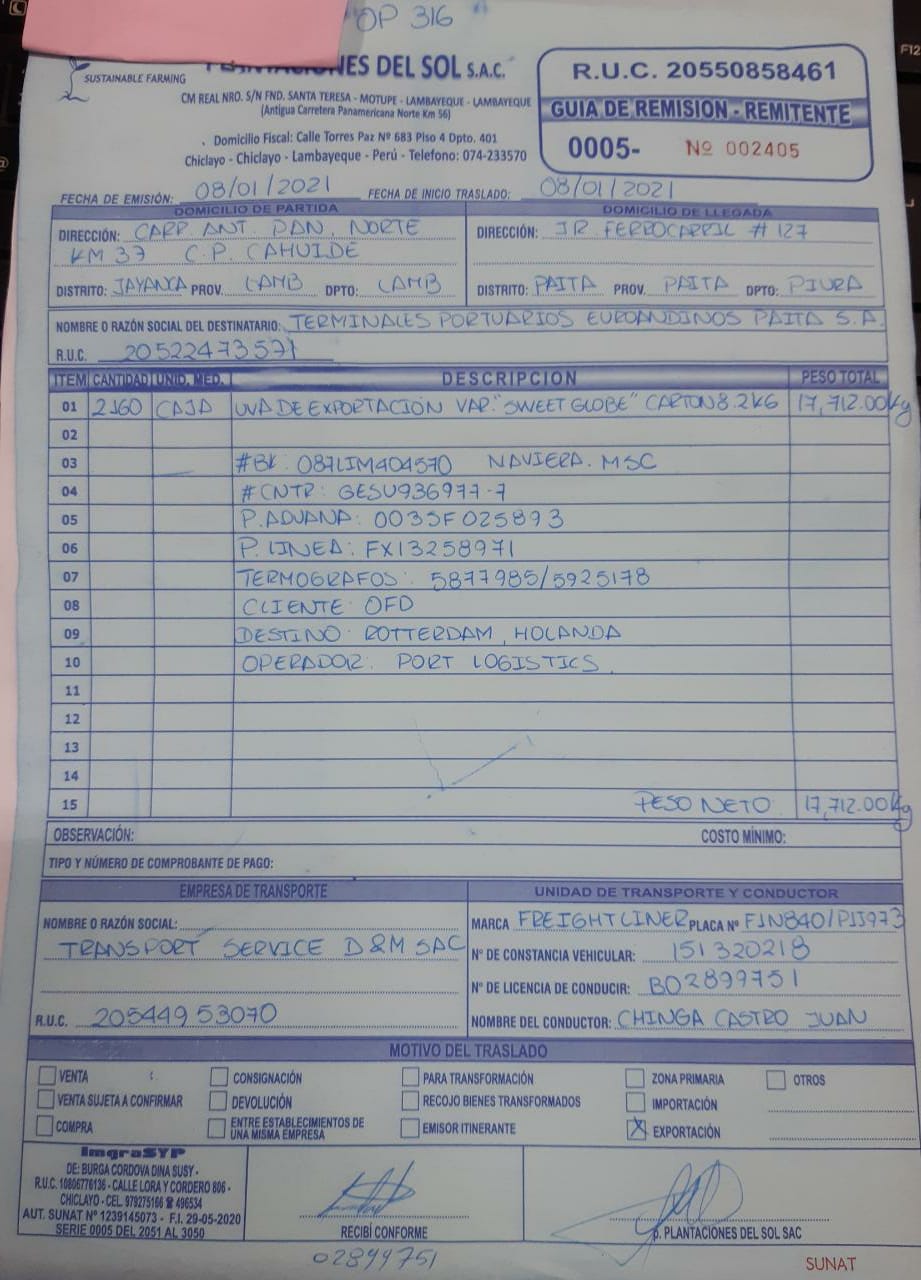 OP 316
SUSTAINABLE FARMING
DEL SOL S.A.C.
CM REAL NRO. S/N FND. SANTA TERESA - MOTUPE - LAMBAYEQUE - LAMBAYEQUE
(Antigua Carretera Panamericana Norte Km 56)
Domicilio Fiscal: Calle Torres Paz Nº 683 Piso 4 Dpto. 401
Chiclayo - Chiclayo - Lambayeque - Perú - Telefono: 074-233570
R.U.C. 20550858461
GUIA DE REMISION - REMITENTE
0005- Nº 002405
FECHA DE EMISIÓN: 08/01/2021 FECHA DE INICIO TRASLADO: 08/01/2021
DOMICILIO DE PARTIDA
DIRECCIÓN: CARR ANT. PAN. NORTE
KM 37 C.P. CAHUIDE
DISTRITO: JAYANCA PROV. LAMB DPTO: LAMB
DOMICILIO DE LLEGADA
DIRECCIÓN: JR FERROCARRIL # 127
DISTRITO: PAITA PROV. PAITA DPTO: PIURA
NOMBRE O RAZÓN SOCIAL DEL DESTINATARIO: TERMINALES PORTUARIOS EUROANDINOS PAITA S.A.
R.U.C. 20522473571
ITEM CANTIDAD UNID. MED. DESCRIPCION PESO TOTAL
01 2160 CAJA UVA DE EXPORTACIÓN VAR. "SWEET GLOBE" CARTON 8.2KG 17,712.00Kg
02
03 #BK: 087LIM404570 NAVIERA. MSC
04 #CNTR: GESU936977-7
05 P.ADUANA: 0035F025893
06 P. LINEA: FX13258971
07 TERMOGRAFOS: 5877985/5925178
08 CLIENTE: OFD
09 DESTINO: ROTTERDAM, HOLANDA
10 OPERADOR: PORT LOGISTICS.
11
12
13
14
15 PESO NETO 17,712.00Kg
OBSERVACIÓN: COSTO MÍNIMO:
TIPO Y NÚMERO DE COMPROBANTE DE PAGO:
EMPRESA DE TRANSPORTE
NOMBRE O RAZÓN SOCIAL:
TRANSPORT SERVICE D&M SAC
R.U.C. 20544953070
UNIDAD DE TRANSPORTE Y CONDUCTOR
MARCA FREIGHTLINER PLACA Nº F1N840/P1J973
Nº DE CONSTANCIA VEHICULAR: 151320218
Nº DE LICENCIA DE CONDUCIR: B02899751
NOMBRE DEL CONDUCTOR: CHINGA CASTRO JUAN
MOTIVO DEL TRASLADO
VENTA CONSIGNACIÓN PARA TRANSFORMACIÓN ZONA PRIMARIA OTROS
VENTA SUJETA A CONFIRMAR DEVOLUCIÓN RECOJO BIENES TRANSFORMADOS IMPORTACIÓN
COMPRA ENTRE ESTABLECIMIENTOS DE UNA MISMA EMPRESA EMISOR ITINERANTE X EXPORTACIÓN
ImgraSYP
DE: BURGA CORDOVA DINA SUSY -
R.U.C. 10806776136 - CALLE LORA Y CORDERO 806 -
CHICLAYO - CEL. 979275166 ☎ 496534
AUT. SUNAT Nº 1239145073 - F.I. 29-05-2020
SERIE 0005 DEL 2051 AL 3050
RECIBÍ CONFORME
02899751
p. PLANTACIONES DEL SOL SAC
SUNAT
F12